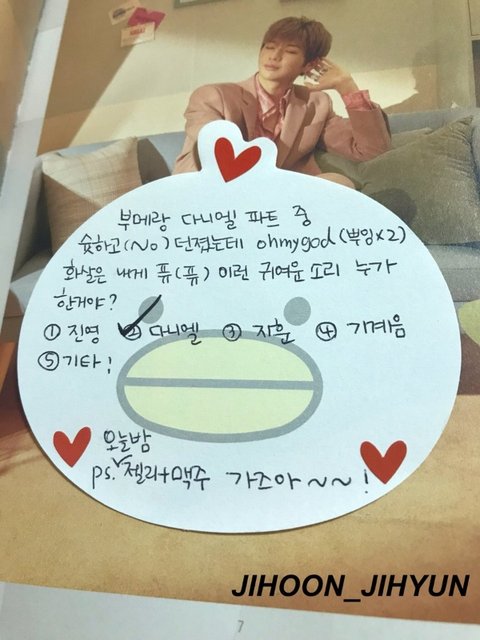 부메랑 다니엘 파트 중
슛하고(No) 던졌는데 ohmygod(뿌잉x2)
화살은 내게 퓨(퓨) 이런 귀여운 소리 누가
한거야?
① 진영 ② 다니엘 ③ 지훈 ④ 기계음
⑤ 기타!
오늘밤
ps. 젤리+맥주 가즈아~~!
JIHOON_JIHYUN
7